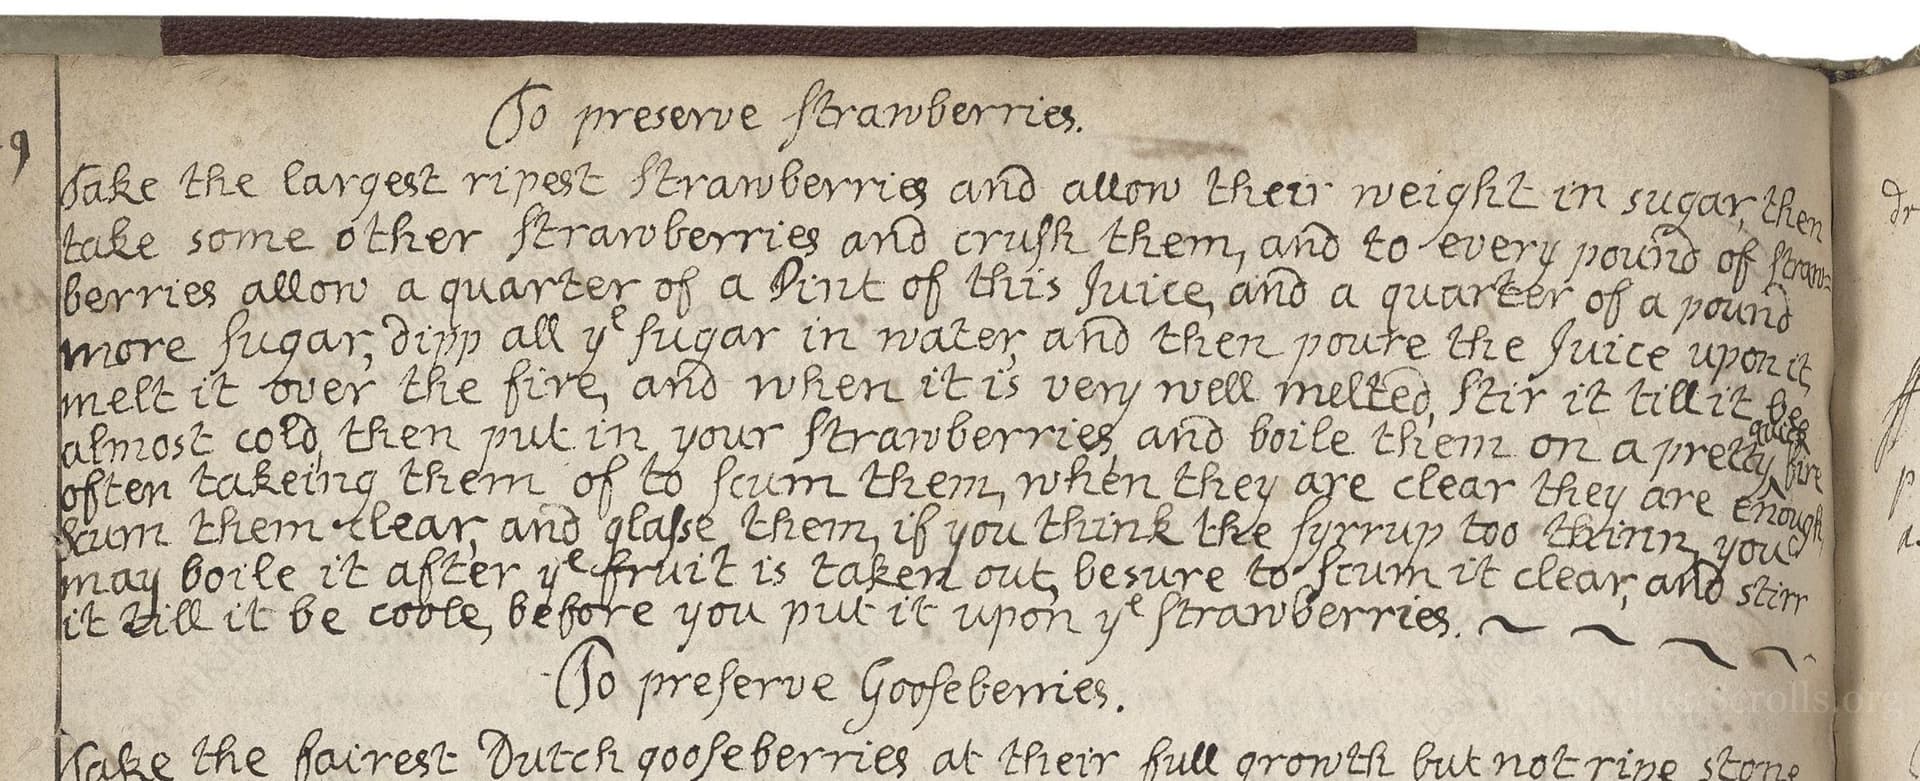 To preserve strawberries.
9
Take the largest ripest strawberries and allow their weight in sugar, then
take some other strawberries and crush them, and to every pound of straw=
berries allow a quarter of a Pint of this Juice, and a quarter of a pound
more sugar, dipp all yᵉ sugar in water, and then poure the Juice upon it,
melt it over the fire, and when it is very well melted, stir it till it be
almost cold, then put in your strawberries, and boile them on a pretty quick fire
often takeing them of to scum them, when they are clear they are enough,
scum them clear, and glasse them, if you think the syrrup too thinn, you
may boile it after yᵉ fruit is taken out, besure to scum it clear, and stirr
it till it be coole, before you put it upon yᵉ strawberries.
To preserve Gooseberries.
Take the fairest Dutch gooseberries at their full growth but not ripe stone